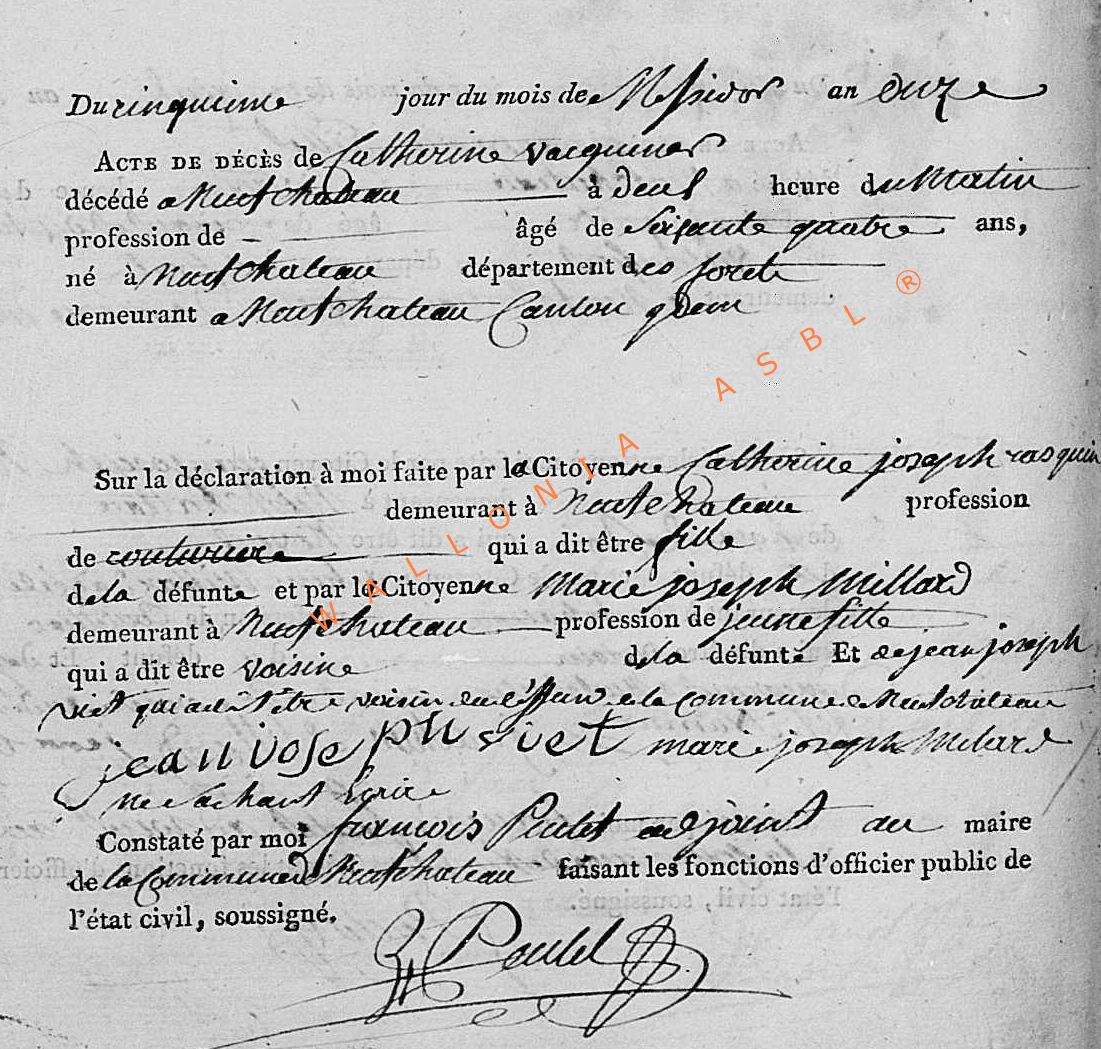 Du cinquieme jour du mois de Messidor an onze
ACTE DE DÉCÈS de Catherine
décédé a Neufchateau à deux heure du Matin
profession de — âgé de Soixante quatre ans,
né à Neufchateau département des forets
demeurant a Neufchateau Canton
Sur la déclaration à moi faite par la Citoyenne Catherine joseph rasquin
demeurant à Neufchateau profession
de couturiere qui a dit être fille
de la défunte et par la Citoyenne Marie joseph Millard
demeurant à Neufchateau profession de jeune fille
qui a dit être voisine de la défunte Et de jean joseph
viet qui a dit être voisin de la commune de Neufchateau
jean joseph viet marie joseph Milard
ne sachant Ecrire
Constaté par moi francois Poulet adjoint au maire
de la Commune de Neufchateau faisant les fonctions d'officier public de
l'état civil, soussigné.
Poulet
WALLONIA ASBL ®